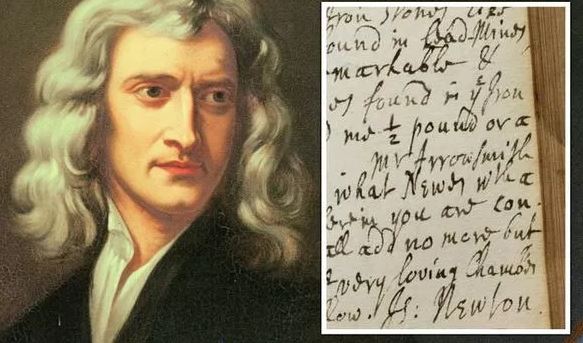 found in Lead Mines
markable &
es found in yͤ Iron
me ½ pound or a
Mr Arrowsmith
what Newes wth a
you are con
all add no more but
very loving Chamber
low. Is: Newton.